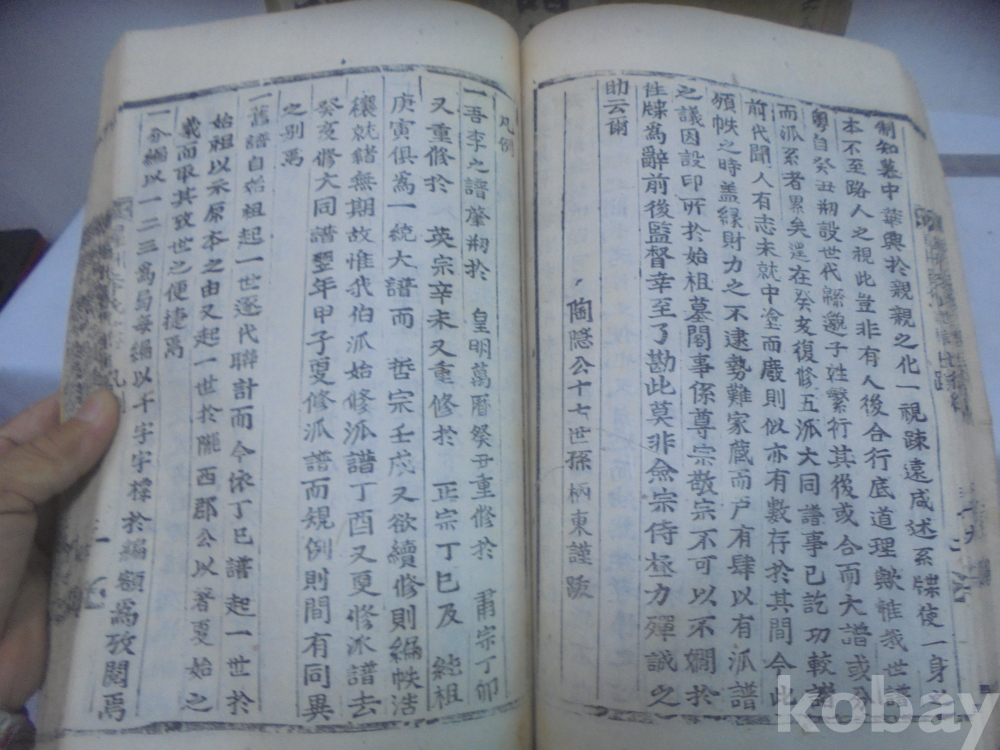 制知墓中華興於親親之化一視疎遠咸述系牒使一身之
本不至路人之視此豈非有人後合行底道理歟惟我世譜
粵自癸丑刱設世代緜邈子姓繁衍其後或合而大譜或分
而派系者累矣還在癸亥復修五派大同譜事已訖功較諸
前代聞人有志未就中塗而廢則似亦有數存於其間今此
頒帙之時盖緣財力之不逮勢難家蔵而戸有肆以有派譜
之議因設印所於始祖墓閣事係尊宗敬宗不可以不嫺於
性牒為辭前後監督幸至了勘此莫非僉宗侍極力殫誠之
助云爾
陶隱公十七世孫柄東謹跋
凡例
一吾李之譜肇刱於 皇明萬曆癸丑重修於 肅宗丁卯
又重修於 英宗辛未又重修於 正宗丁巳及 純祖
庚寅俱為一統大譜而 哲宗壬戌又欲續修則編帙浩
穰就緒無期故惟我伯派始修派譜丁酉又更修派譜去
癸亥修大同譜翌年甲子更修派譜而規例則間有同異
之別焉
一舊譜自始祖起一世逐代聯計而今依丁巳譜起一世於
始祖以示原本之由又起一世於隴西郡公以著更始之
義而取其攷世之便捷焉
一分編以一二三為号每編以千字字標於編額為攷閱焉
kobay